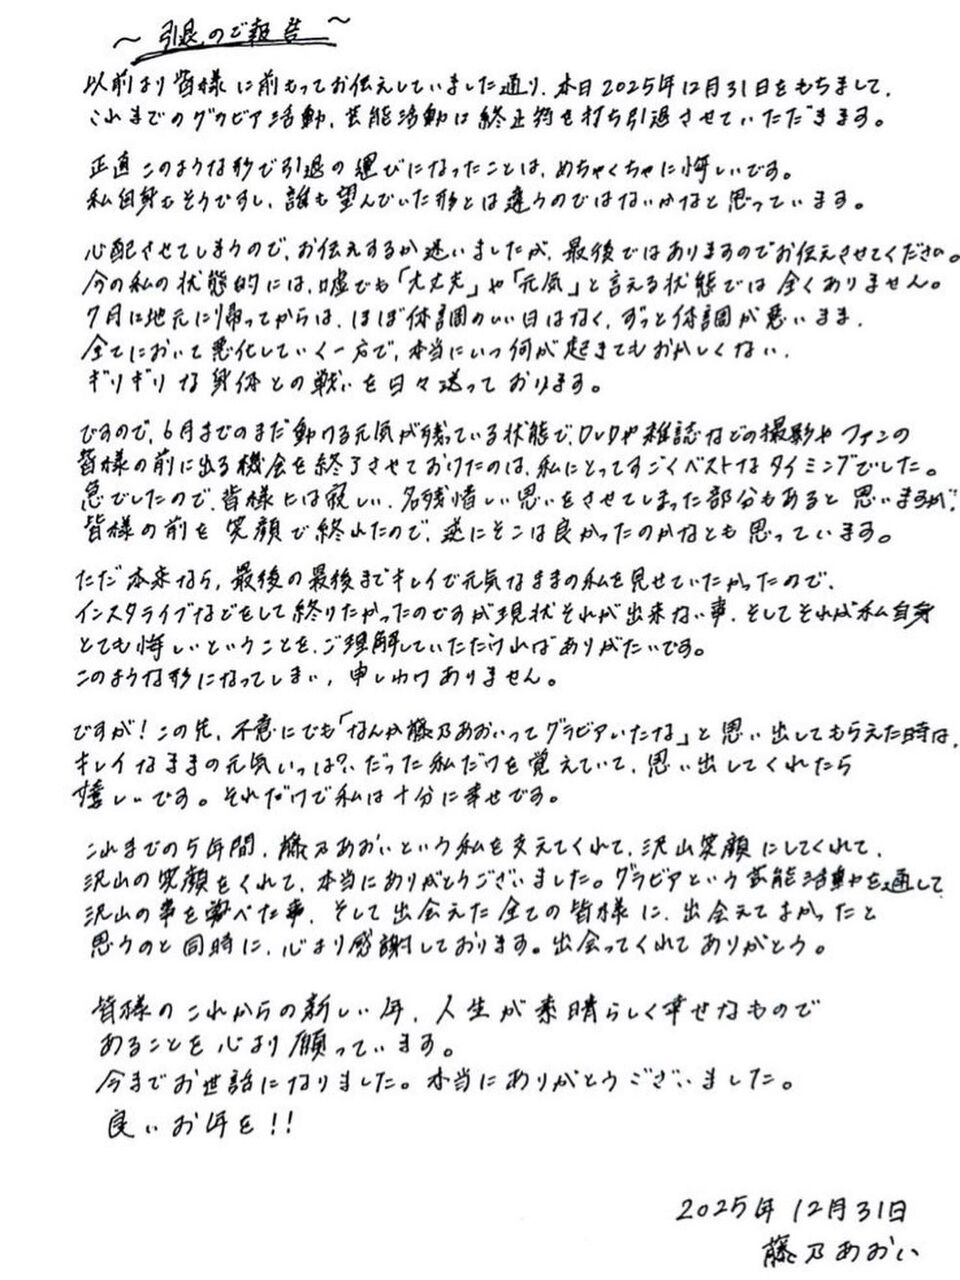 〜引退のご報告〜
以前より皆様に前もってお伝えしていました通り、本日2025年12月31日をもちまして、
これまでのグラビア活動、芸能活動に終止符を打ち引退させていただきます。
正直このような形で引退の運びになったことは、めちゃくちゃに悔しいです。
私自身もそうですし、誰も望んでいた形とは違うのではないかなと思っています。
心配させてしまうので、お伝えするか迷いましたが、最後ではありますのでお伝えさせてください。
今の私の状態的には、嘘でも「大丈夫」や「元気」と言える状態では全くありません。
7月に地元に帰ってからは、ほぼ体調のいい日はなく、ずっと体調が悪いまま、
全てにおいて悪化していく一方で、本当にいつ何が起きてもおかしくない、
ギリギリな身体との戦いを日々送っております。
ですので、6月までのまだ動ける元気が残っている状態で、DVDや雑誌などの撮影やファンの
皆様の前に出る機会を終了させておけたのは、私にとってすごくベストなタイミングでした。
急でしたので、皆様には寂しい、名残惜しい思いをさせてしまった部分もあると思いますが、
皆様の前を笑顔で終れたので、逆にそこは良かったのかなとも思っています。
ただ本来なら、最後の最後までキレイで元気なままの私を見せていたかったので、
インスタライブなどをして終りたかったのですが現状それが出来ない事、そしてそれが私自身
とても悔しいということを、ご理解していただければありがたいです。
このような形になってしまい、申しわけありません。
ですが！この先、不意にでも「なんか藤乃あおいってグラビアいたな」と思い出してもらえた時は、
キレイなままの元気いっぱいだった私だけを覚えていて、思い出してくれたら
嬉しいです。それだけで私は十分に幸せです。
これまでの5年間、藤乃あおいという私を支えてくれて、沢山笑顔にしてくれて、
沢山の笑顔をくれて、本当にありがとうございました。グラビアという芸能活動を通して
沢山の事を学べた事、そして出会えた全ての皆様に、出会えてよかったと
思うのと同時に、心より感謝しております。出会ってくれてありがとう。
皆様のこれからの新しい年、人生が素晴らしく幸せなもので
あることを心より願っています。
今までお世話になりました。本当にありがとうございました。
良いお年を！！
2025年12月31日
藤乃あおい